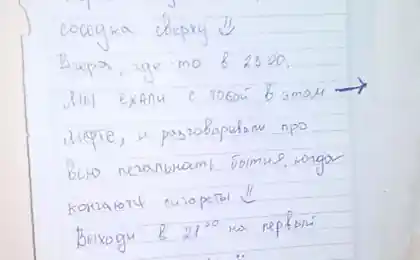 соседка сверху
Вчера, где то в 23 00.
мы ехали с тобой в этом
лифте, и разговаривали про
всю печальность бытия, когда
кончаются сигареты
Выходи в 21 00 на первый